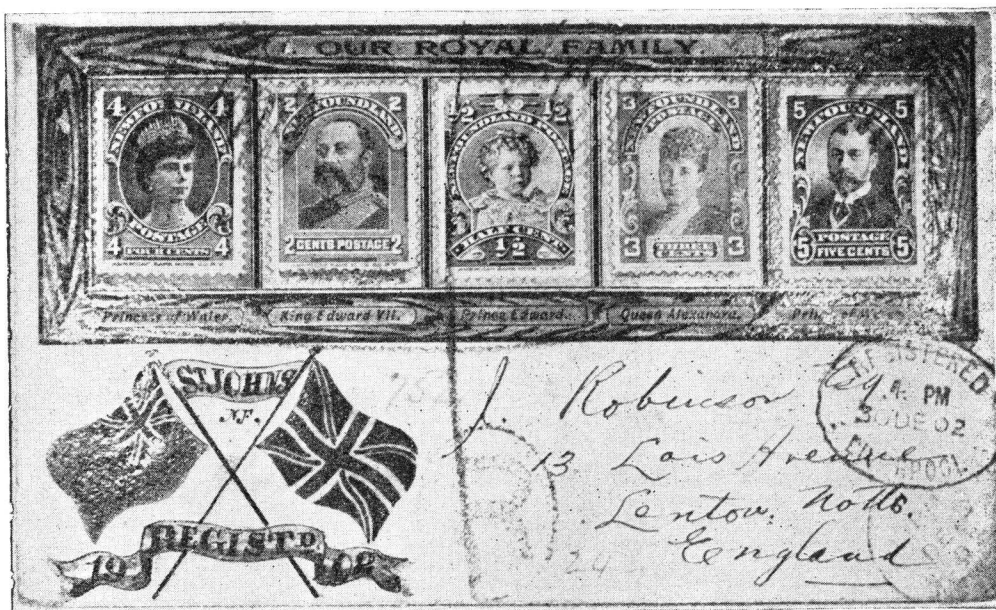 OUR ROYAL FAMILY.
4 NEWFOUNDLAND 4
POSTAGE
4 FOUR CENTS 4
2 NEWFOUNDLAND 2
2 CENTS POSTAGE 2
1/2 1/2
NEWFOUNDLAND POSTAGE
HALF CENT
1/2
3 NEWFOUNDLAND 3
POSTAGE
3 THREE CENTS 3
5 NEWFOUNDLAND 5
POSTAGE
5 FIVE CENTS 5
Princess of Wales.
King Edward VII.
Prince Edward.
Queen Alexandra.
ST JOHN'S
N.F.
REGISTD
19 02
J. Robinson Esq.
13 Lois Avenue
Lenton, Notts.
England
REGISTERED
4. PM
30 DE 02
24